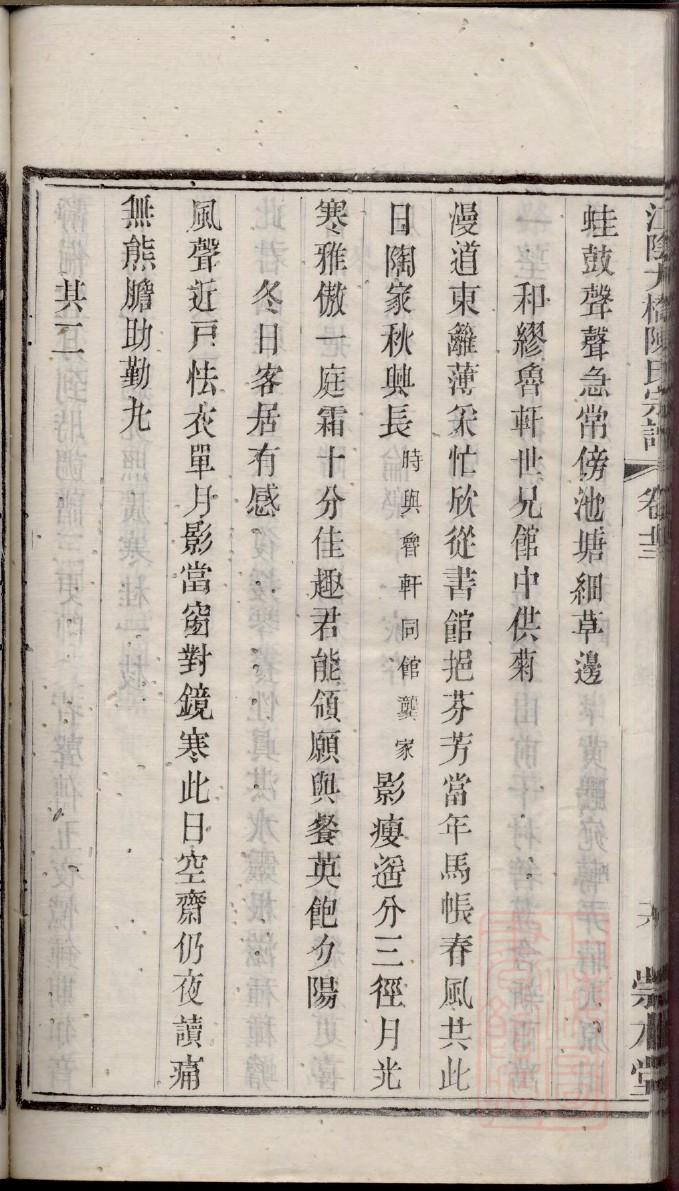 蛙鼓聲聲急常傍池塘細草邊
和繆魯軒世兄館中供菊
漫道東籬薄采忙欣從書館挹芬芳當年馬帳春風共此
日陶家秋興長時與魯軒同館龔家影瘦遥分三徑月光
寒雅傲一庭霜十分佳趣君能領願與餐英飽夕陽
冬日客居有感
風聲近戸怯衣單月影當窗對鏡寒此日空齋仍夜讀痛
無熊膽助勤丸
其二